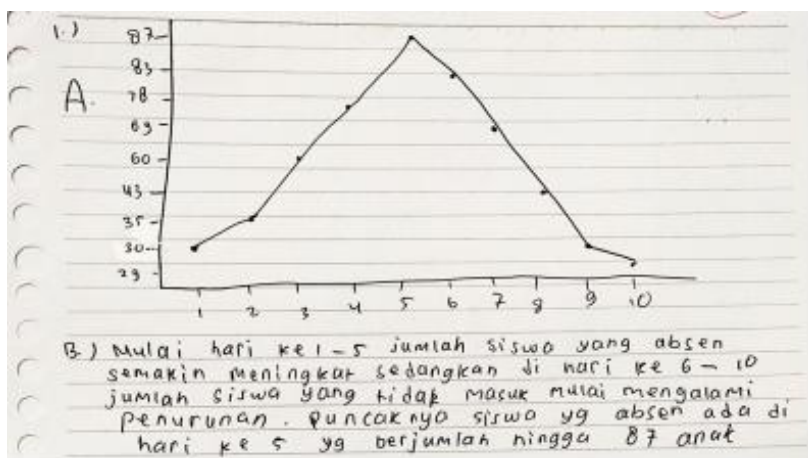 1.)
A.
87
83
78
69
60
45
35
30
29
1 2 3 4 5 6 7 8 9 10
B.) Mulai hari ke 1-5 jumlah siswa yang absen
semakin meningkat sedangkan di hari ke 6-10
jumlah siswa yang tidak masuk mulai mengalami
penurunan. Puncaknya siswa yg absen ada di
hari ke 5 yg berjumlah hingga 87 anak